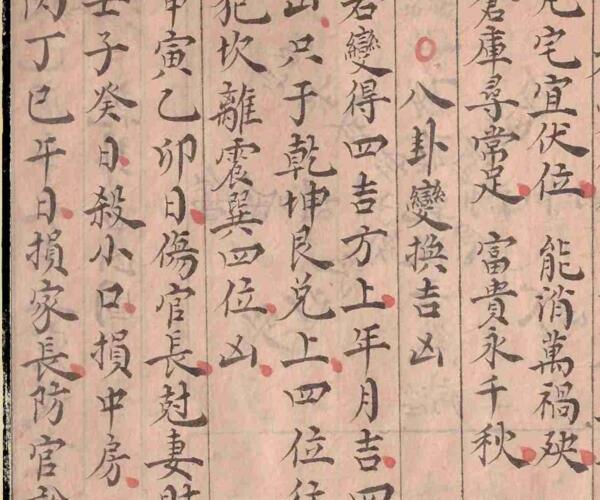 宅宜伏位 能消萬禍殃
倉庫尋常足 富貴永千秋
○八卦變換吉凶
若變得四吉方上年月吉四
山只于乾坤艮兌上四位往
犯坎離震巽四位凶
申寅乙卯日傷官長尅妻財
壬子癸日殺小口損中房
丙丁巳午日損家長防官訟